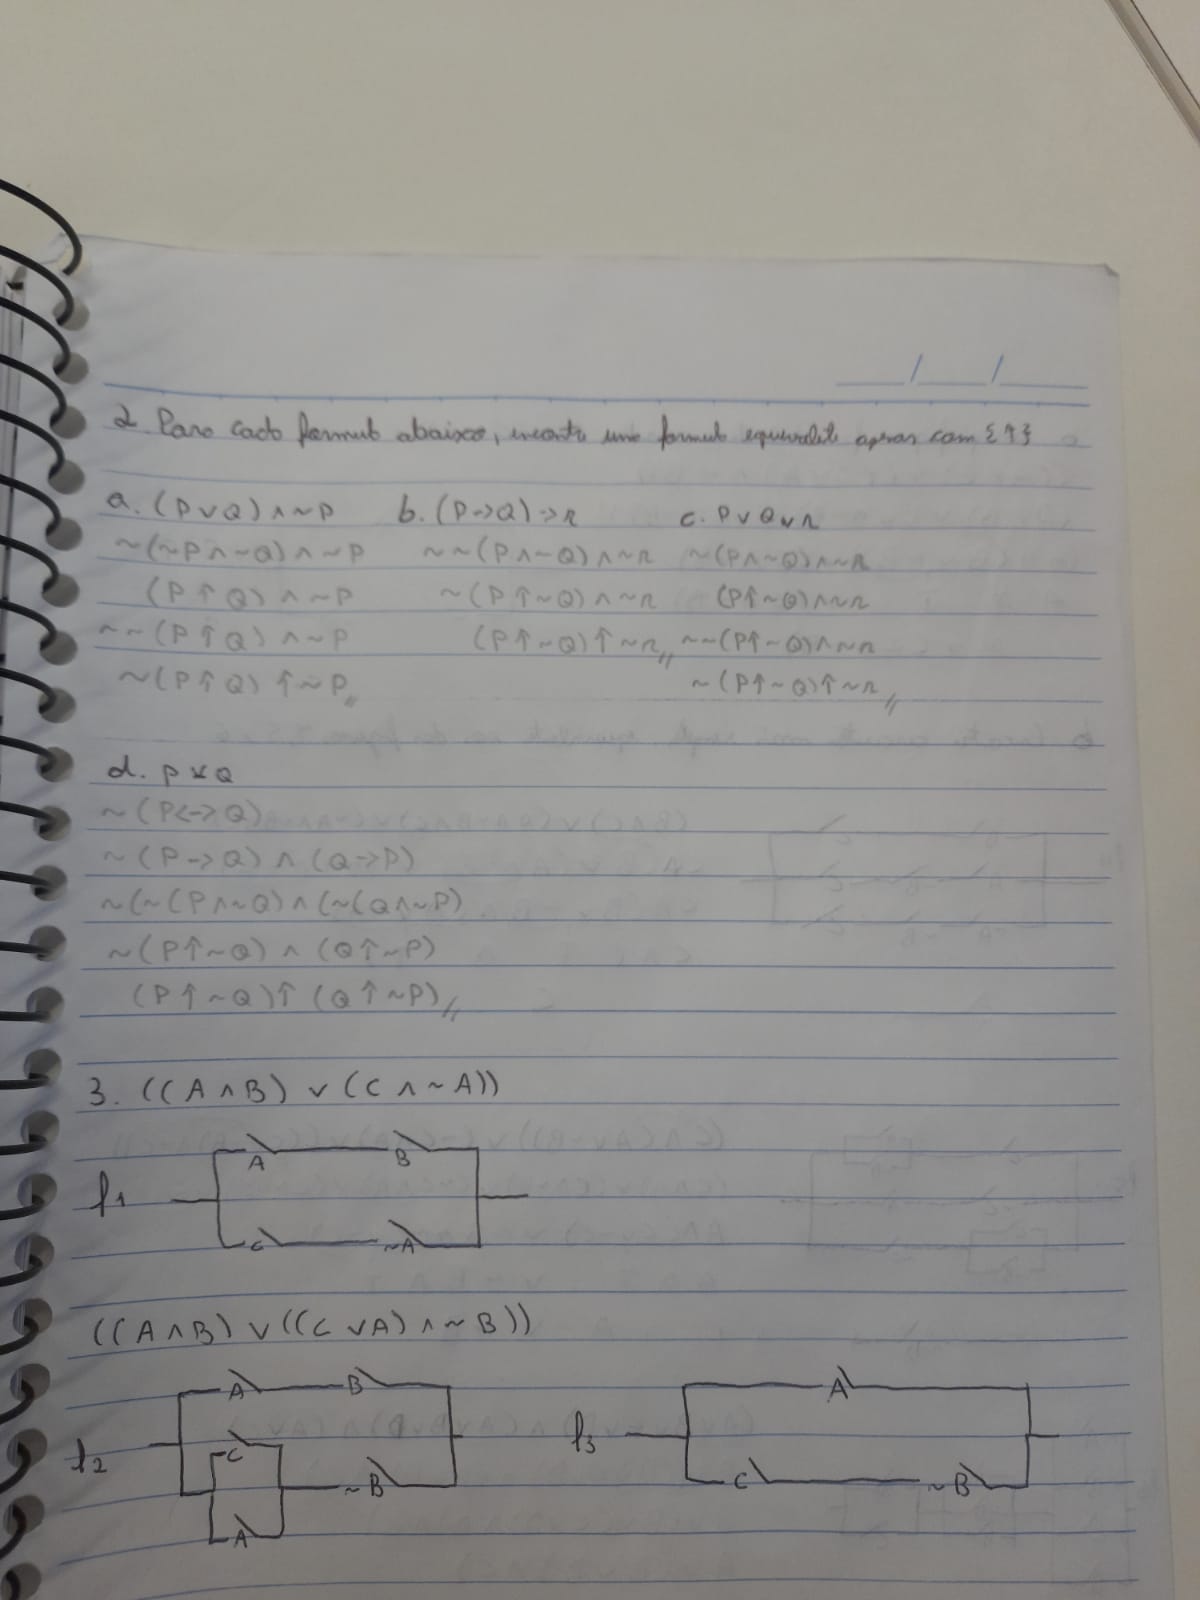 2. Para cada formula abaixo, encontre uma formula equivalente apenas com {↑}
a. (P∨Q)∧~P b. (P->Q)->R c. P∨Q∨R
~(~P∧~Q)∧~P ~~(P∧~Q)∧~R ~(P∧~Q)∧~R
(P↑Q)∧~P ~(P↑~Q)∧~R (P↑~Q)∧~R
~~(P↑Q)∧~P (P↑~Q)↑~R// ~~(P↑~Q)∧~R
~(P↑Q)↑~P// ~(P↑~Q)↑~R//
d. P⊻Q
~(P<->Q)
~(P->Q)∧(Q->P)
~(~(P∧~Q)∧(~(Q∧~P)
~(P↑~Q)∧(Q↑~P)
(P↑~Q)↑(Q↑~P)//
3. ((A∧B)∨(C∧~A))
A B
f1
C ~A
((A∧B)∨((C∨A)∧~B))
A B A
f2 C f3
~B C ~B
A